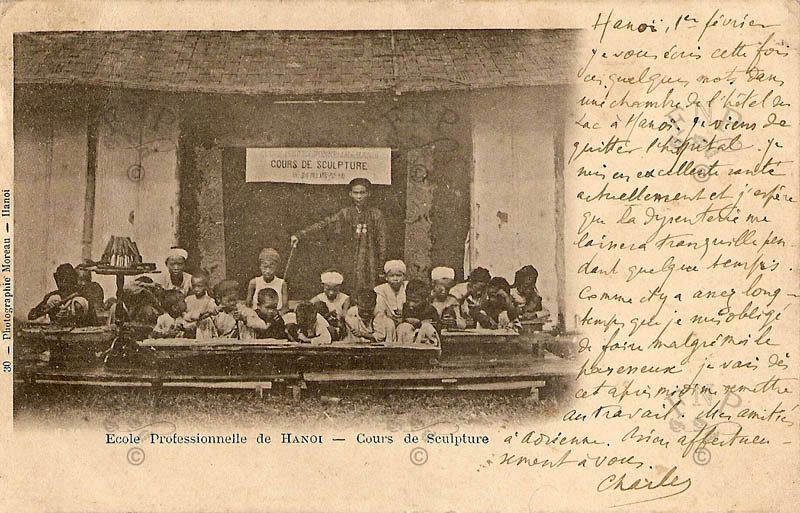 COURS DE SCULPTURE
30 — Photographie Moreau — Hanoi
Ecole Professionnelle de HANOI — Cours de Sculpture
Hanoï, 1er février
je vous écris cette fois
ces quelques mots dans
une chambre de l'hôtel du
Lac à Hanoi. Je viens de
quitter l'hôpital. je
suis en excellente santé
actuellement et j'espère
que la dysenterie me
laissera tranquille pen-
dant quelque temps.
Comme il y a assez long-
temps que je suis obligé
de faire malgré moi le
paresseux je vais dès
cet après midi me remettre
au travail. Mes amitiés
à Adrienne. Bien affectueu-
sement à vous.
Charles